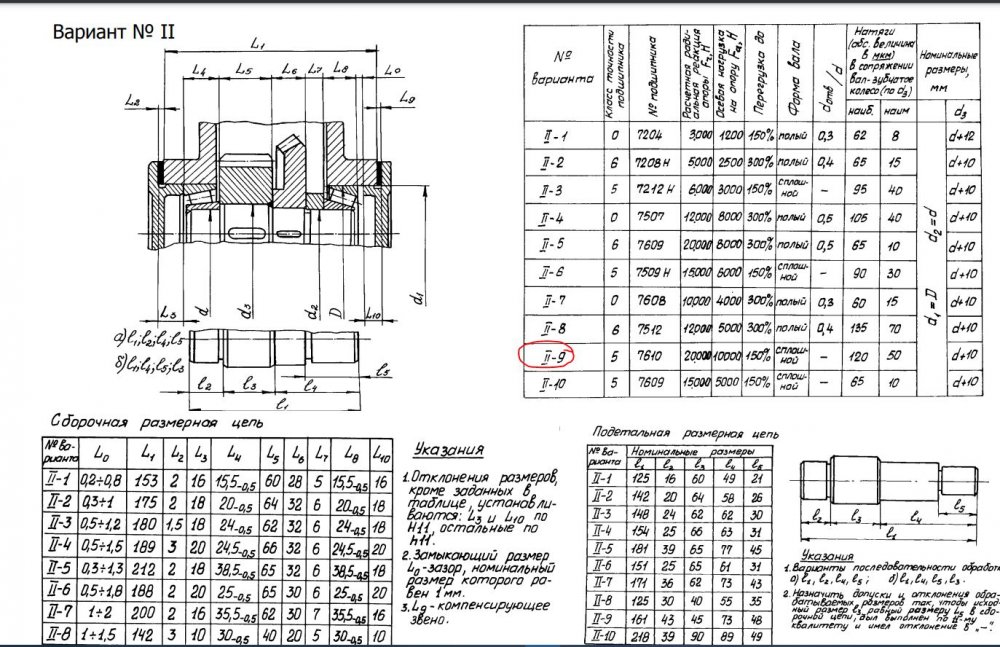 Вариант № II
L₁
L₄ L₅ L₆ L₇ L₈ L₀
L₂
L₉
L₃ d d₃ d₂ D d₁ L₁₀
а) l₁; l₂; l₄; l₅
б) l₁; l₄; l₅; l₃
l₂ l₃ l₄ l₅
l₁
№ варианта | Класс точности подшипника | № подшипника | Расчетная ради-альная реакция опоры Fr, H | Осевая нагрузка на опору Fa, H | Перегрузка до | Форма вала | dотв / d | Натяги (абс. величина в мкм) в сопряжении вал-зубчатое колесо (по d₃) наиб. наим | Номинальные размеры, мм d₃
II-1 0 7204 3000 1200 150% полый 0,3 62 8 d+12
II-2 6 7208Н 5000 2500 300% полый 0,4 65 15 d+10
II-3 5 7212Н 6000 3000 150% сплош-ной – 95 40 d+10
II-4 0 7507 12000 8000 300% полый 0,5 105 40 d+10
II-5 6 7609 20000 8000 300% полый 0,5 65 10 d+10
II-6 5 7509Н 15000 6000 150% сплош-ной – 90 30 d+10
II-7 0 7608 10000 4000 300% полый 0,3 60 15 d+10
II-8 6 7512 12000 5000 300% полый 0,4 135 70 d+10
II-9 5 7610 20000 10000 150% сплош-ной – 120 50 d+10
II-10 5 7609 15000 5000 150% сплош-ной – 65 10 d+10
d₁=D d₂=d
Сборочная размерная цепь
№ ва-рианта L₀ L₁ L₂ L₃ L₄ L₅ L₆ L₇ L₈ L₁₀
II-1 0,2÷0,8 153 2 16 15,5₋₀,₅ 60 28 5 15,5₋₀,₅ 16
II-2 0,3÷1 175 2 18 20₋₀,₅ 64 32 6 20₋₀,₅ 18
II-3 0,5÷1,2 180 1,5 18 24₋₀,₅ 62 32 6 24₋₀,₅ 18
II-4 0,5÷1,5 189 3 20 24,5₋₀,₅ 66 32 6 24,5₋₀,₅ 20
II-5 0,3÷1,3 212 2 18 38,5₋₀,₅ 65 32 6 38,5₋₀,₅ 18
II-6 0,5÷1,8 188 2 20 25₋₀,₅ 65 30 6 25₋₀,₅ 20
II-7 1÷2 200 2 16 35,5₋₀,₅ 62 30 7 35,5₋₀,₅ 16
II-8 1÷1,5 142 3 10 30₋₀,₅ 40 20 5 30₋₀,₅ 10
Указания
1. Отклонения размеров,
кроме заданных в
таблице, устанавли-
ваются: L₃ и L₁₀ по
H11, остальные по
h11.
2. Замыкающий размер
L₀-зазор, номинальный
размер которого ра-
вен 1 мм.
3. L₉ - компенсирующее
звено.
Подетальная размерная цепь
№ Ва-рианта Номинальные размеры
l₁ l₂ l₃ l₄ l₅
II-1 125 16 60 49 21
II-2 142 20 64 58 26
II-3 148 24 62 62 30
II-4 154 25 66 63 31
II-5 181 39 65 77 45
II-6 151 25 65 61 31
II-7 171 36 62 73 43
II-8 125 30 40 55 35
II-9 161 43 45 73 48
II-10 218 39 90 89 49
l₂ l₃ l₄ l₅
l₁
Указания
1. Варианты последовательности обработ
а) l₁, l₂, l₄, l₅; б) l₁, l₄, l₅, l₃.
2. Назначить допуски и отклонения обра-
батываемых размеров так, чтобы исход-
ный размер l₃, равный размеру L₅ в сбо-
рочной цепи, был выполнен по 11-му
квалитету и имел отклонение в „–“.